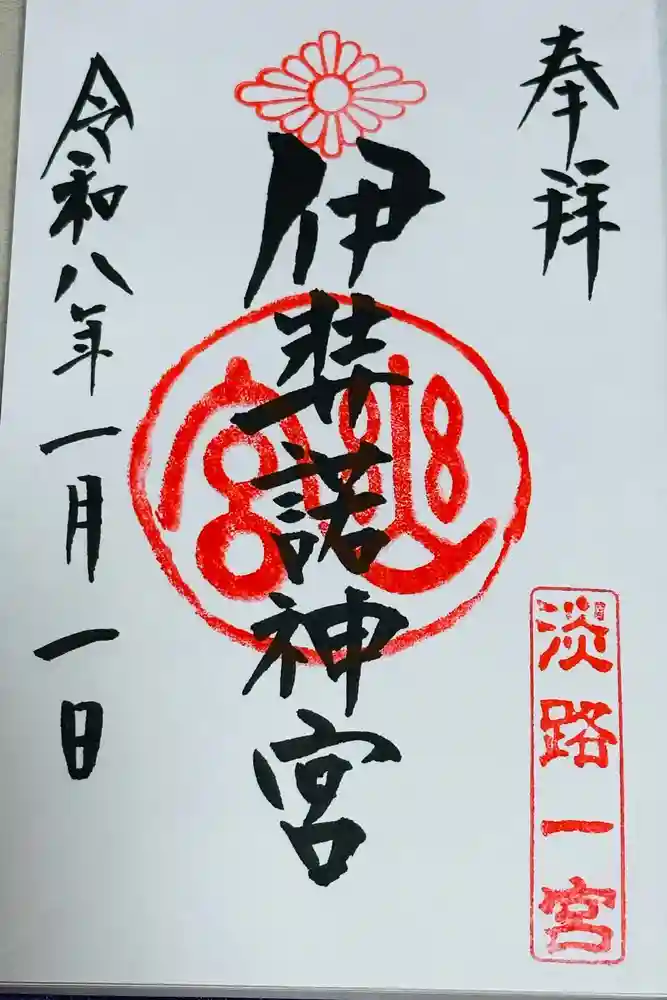 奉拝
淡路一宮
伊弉諾神宮
令和八年一月一日